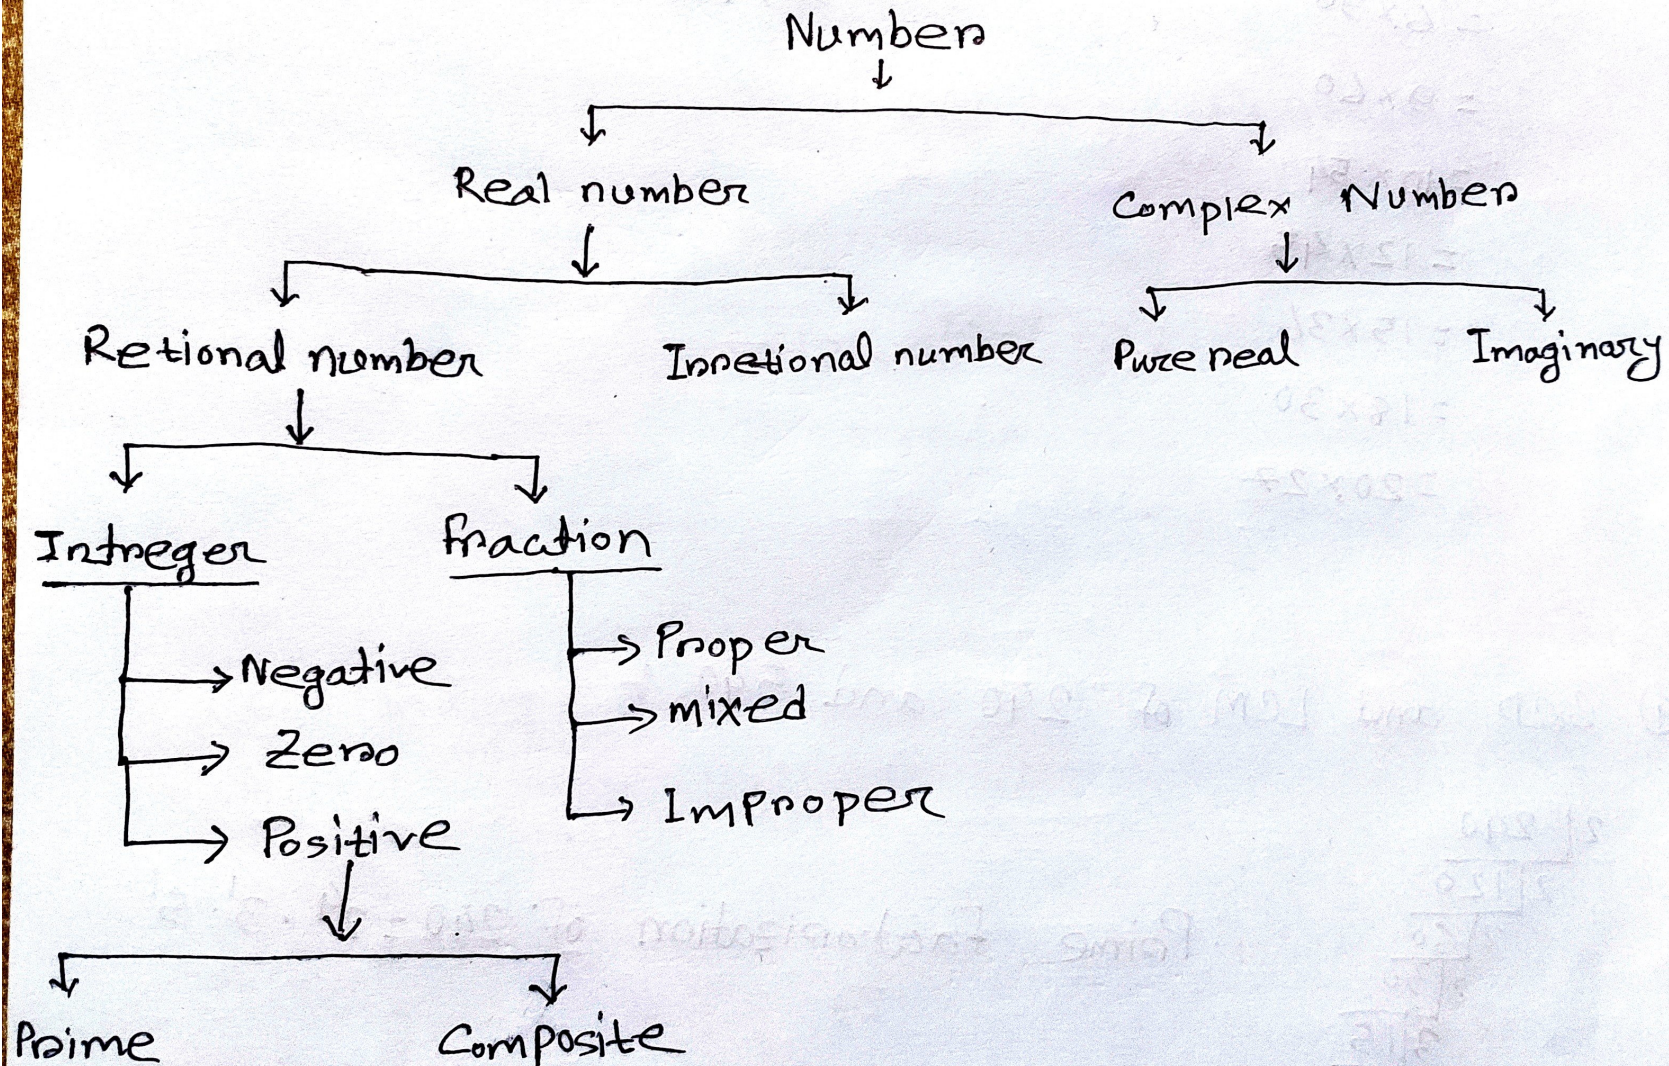 Number
Real number
Complex Number
Retional number
Irretional number
Pure real
Imaginary
Intreger
fraction
Negative
Zero
Positive
Proper
mixed
Improper
Prime
Composite